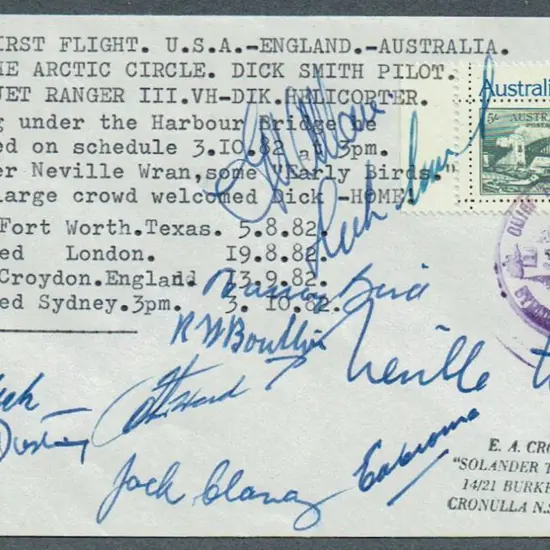 FIRST FLIGHT. U.S.A.-ENGLAND.-AUSTRALIA.
ARCTIC CIRCLE. DICK SMITH PILOT.
JET RANGER III.VH-DIK.HELICOPTER.
under the Harbour Bridge he
on schedule 3.10.82 at 3pm.
Neville Wran,some "Early Birds."
large crowd welcomed Dick -HOME!
Fort Worth.Texas. 5.8.82.
London. 19.8.82.
Croydon.England 13.9.82.
Sydney.3pm. 3. 10.82.
Australia
5/- AUSTRALIA
Dick Smith
Nancy Bird
Neville
Jack
Jack Clancy
E. A. CRO
"SOLANDER T
14/21 BURKE
CRONULLA N.S